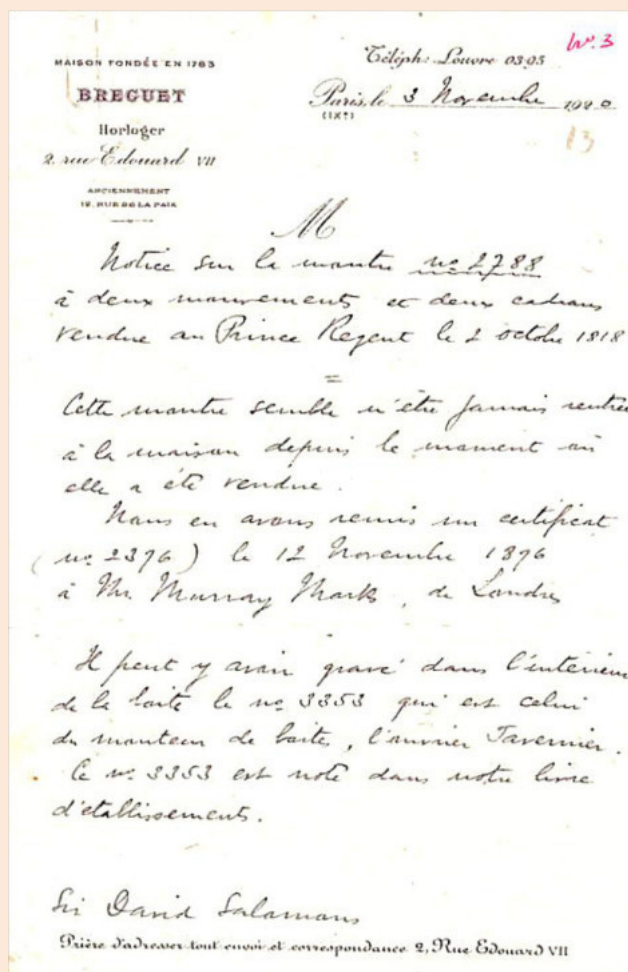 No. 3
MAISON FONDÉE EN 1783
BREGUET
Horloger
2. rue Edouard VII
ANCIENNEMENT
12, RUE DE LA PAIX
Téléph: Louvre 03.95
Paris, le 3 Novembre 1920
(IXe)
13
M
Notice sur la montre no 2788
à deux mouvements et deux cadrans
vendue au Prince Regent le 2 octobre 1818
=
Cette montre semble n'être jamais rentrée
à la maison depuis le moment où
elle a été vendue.
Nous en avons remis un certificat
(no 2376) le 12 Novembre 1896
à Mr. Murray Marks, de Londres
Il peut y avoir gravé dans l'intérieur
de la boîte le no 3353 qui est celui
du monteur de boîtes, l'ouvrier Tavernier.
Ce no 3353 est noté dans notre livre
d'établissements.
Sir David Salomons
Prière d'adresser tout envoi et correspondance 2, Rue Edouard VII